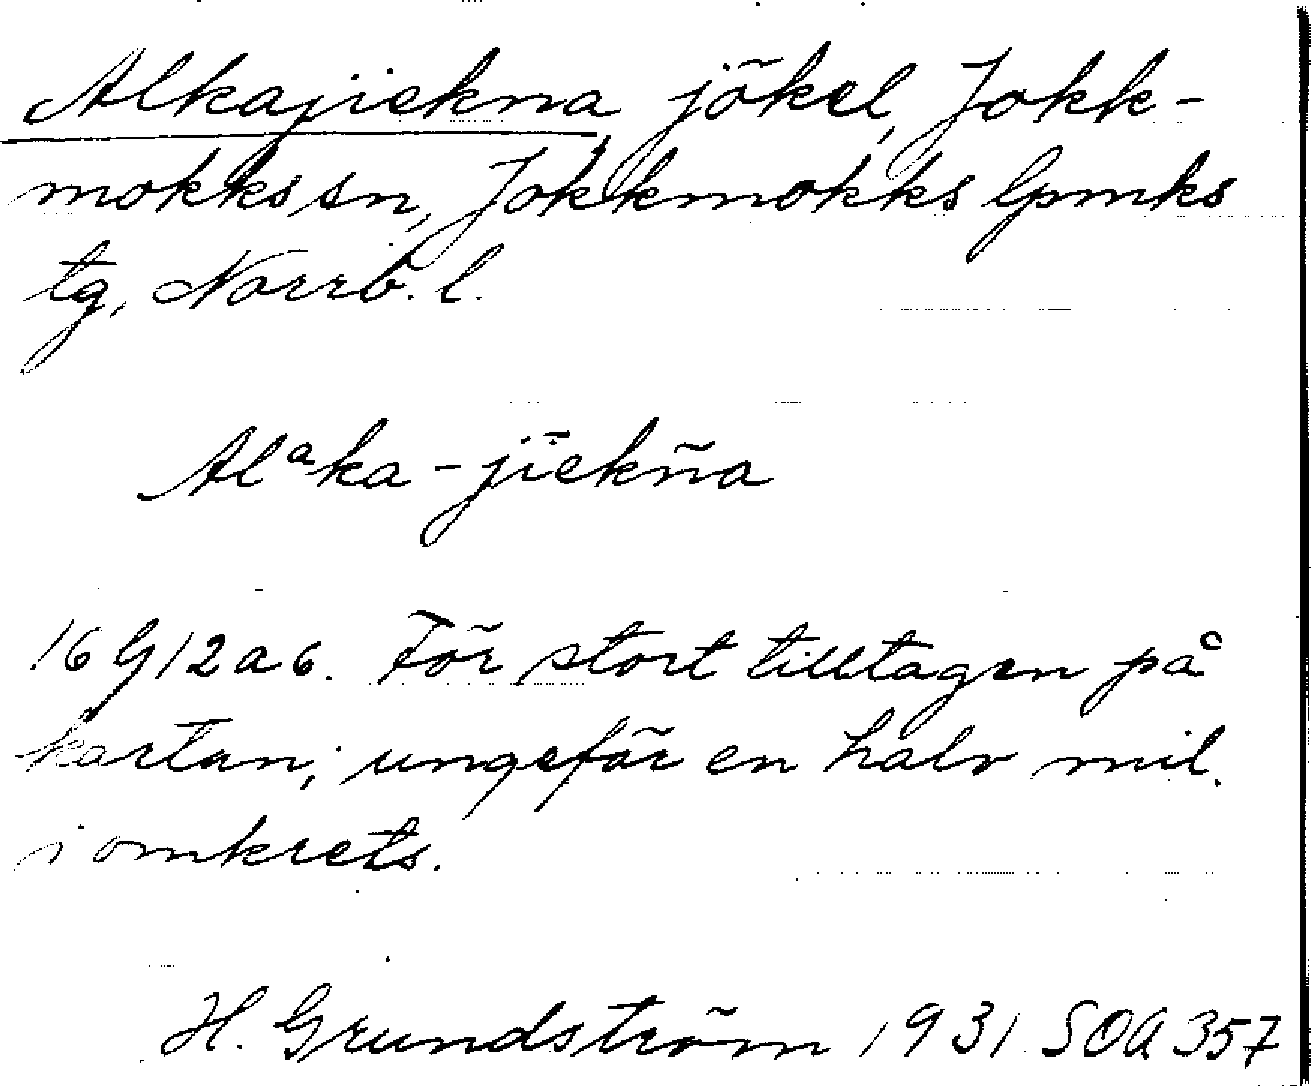 Alkajiekna, jökel, Jokk-
mokks sn, Jokkmokks lpmks
tg, Norrb. l.
Alᵃka-jiēkn̄a
16G12a6. För stort tilltagen på
kartan; ungefär en halv mil.
i omkrets.
H. Grundström 1931 SOA 357